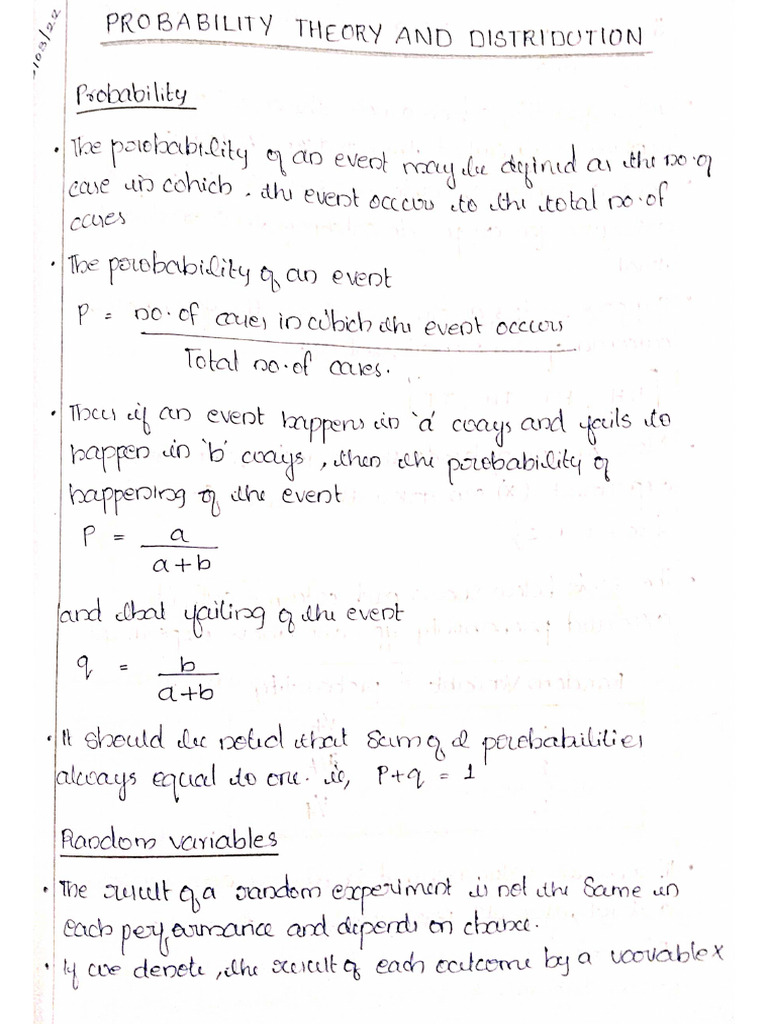 /03/22
PROBABILITY THEORY AND DISTRIBUTION
Probability
• The probability of an event may be defined as the no. of
case in which, the event occurs to the total no. of
cases
• The probability of an event
P = no. of cases in which the event occurs
Total no. of cases.
• Thus if an event happens in 'a' ways and fails to
happen in 'b' ways, then the probability of
happening of the event
P = a
a+b
and that failing of the event
q = b
a+b
• It should be noted that sum of 2 probabilities
always equal to one. ie, P+q = 1
Random variables
• The result of a random experiment is not the same in
each performance and depends on chance.
• If we denote, the result of each outcome by a variable X